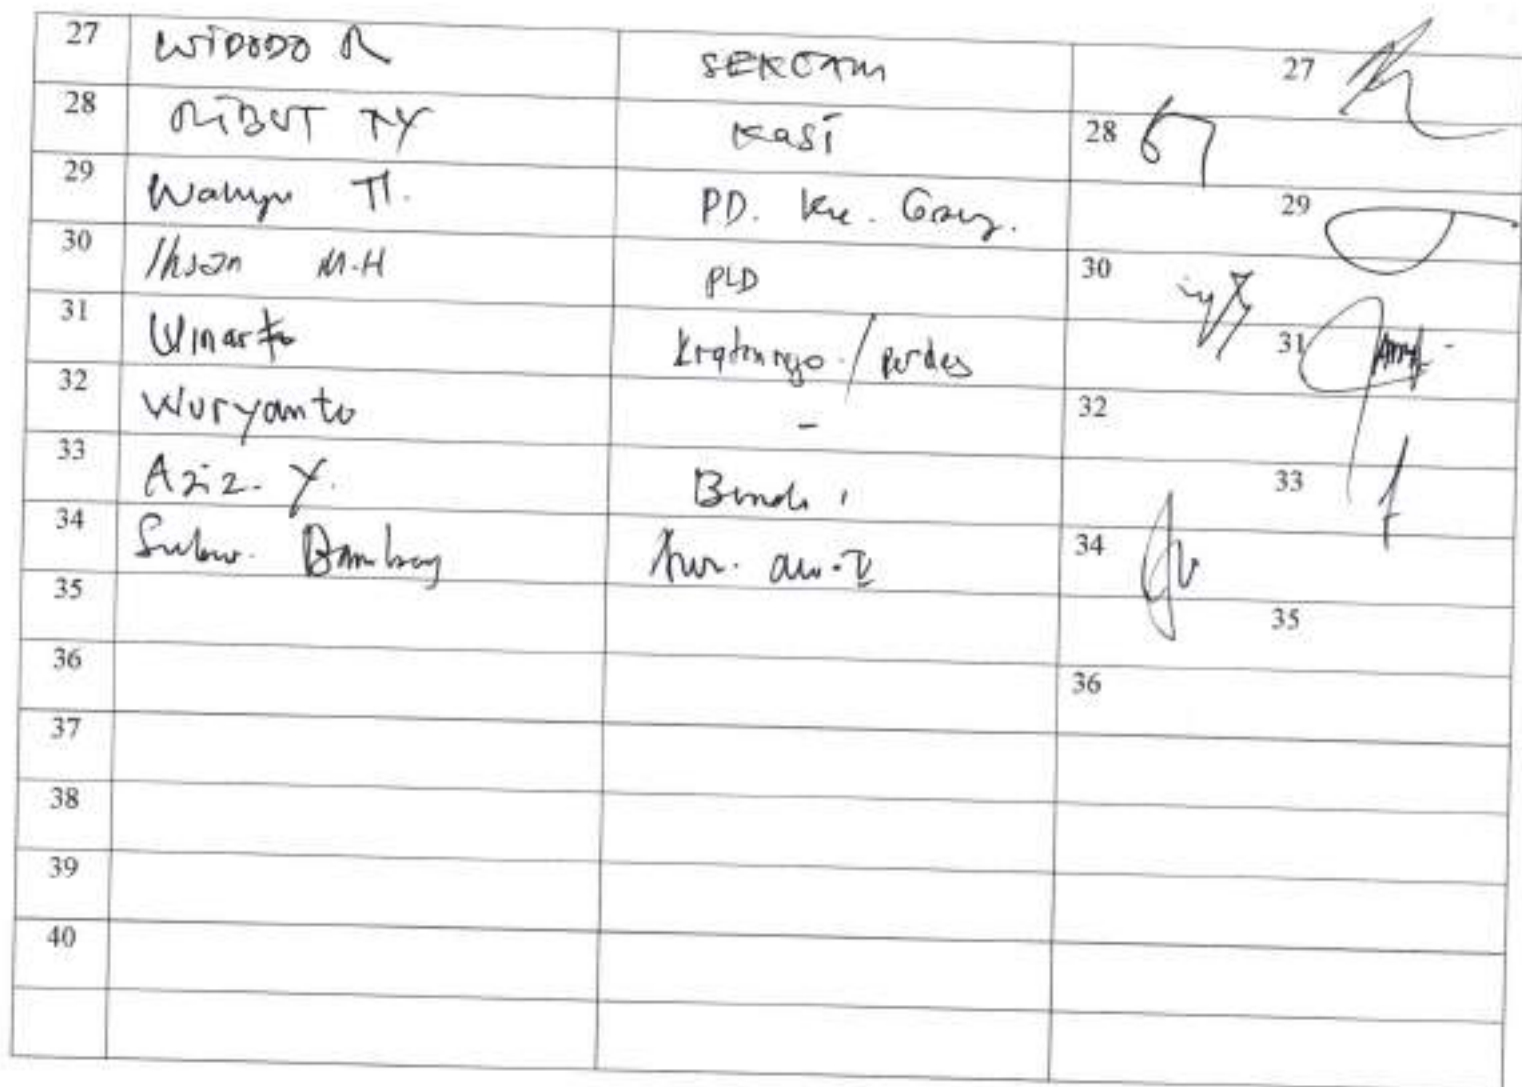 27 WIDODO R SEKCAM 27
28 RIBUT TY KASI 28
29 Wahyu TI. PD. Kec. 29
30 Ihsan M.H PLD 30
31 Winarto / Perdes 31
32 Wuryanto - 32
33 Aziz. Y. 33
34 Bambang 34
35 35
36 36
37
38
39
40